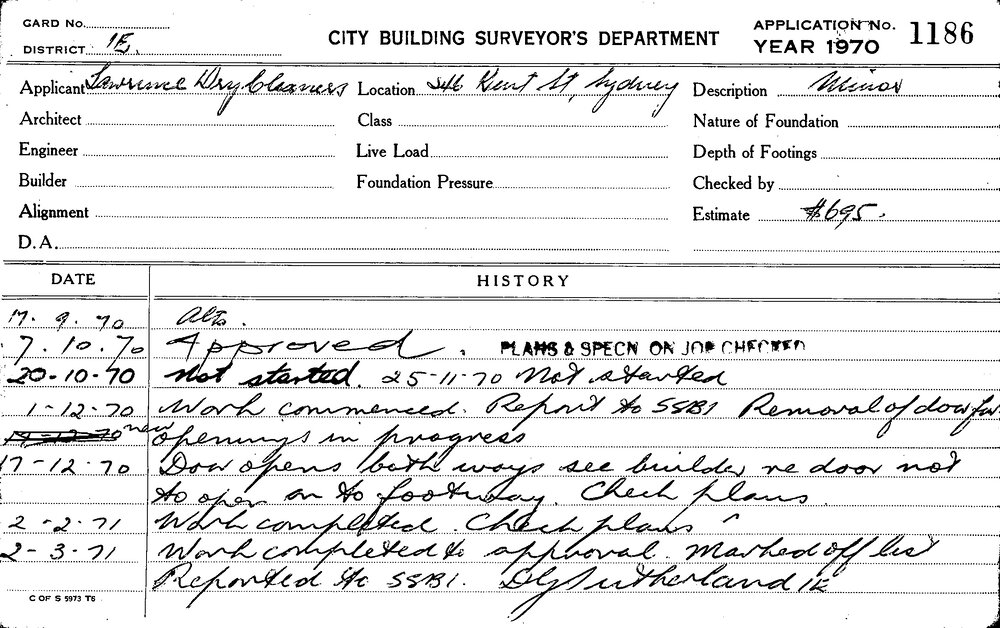 CARD No.
DISTRICT 1E.
CITY BUILDING SURVEYOR'S DEPARTMENT
APPLICATION No. 1186
YEAR 1970
Applicant Lawrence Dry Cleaners Location 546 Kent St, Sydney Description Minor
Architect Class Nature of Foundation
Engineer Live Load Depth of Footings
Builder Foundation Pressure Checked by
Alignment Estimate $695.
D.A.
DATE HISTORY
17. 9. 70 Alts.
7. 10. 70 Approved. PLANS & SPECN ON JOB CHECKED
20-10-70 Not started. 25-11-70 Not started
1-12-70 Work commenced. Report to SSB1 Removal of door for
new openings in progress
17-12-70 Door opens both ways see builder re door not
to open on to footway. Check plans
2-2-71 Work completed. Check plans
2-3-71 Work completed to approval. Marked off list
Reported to SSB1. Sutherland 1E
C OF S 5973 T6